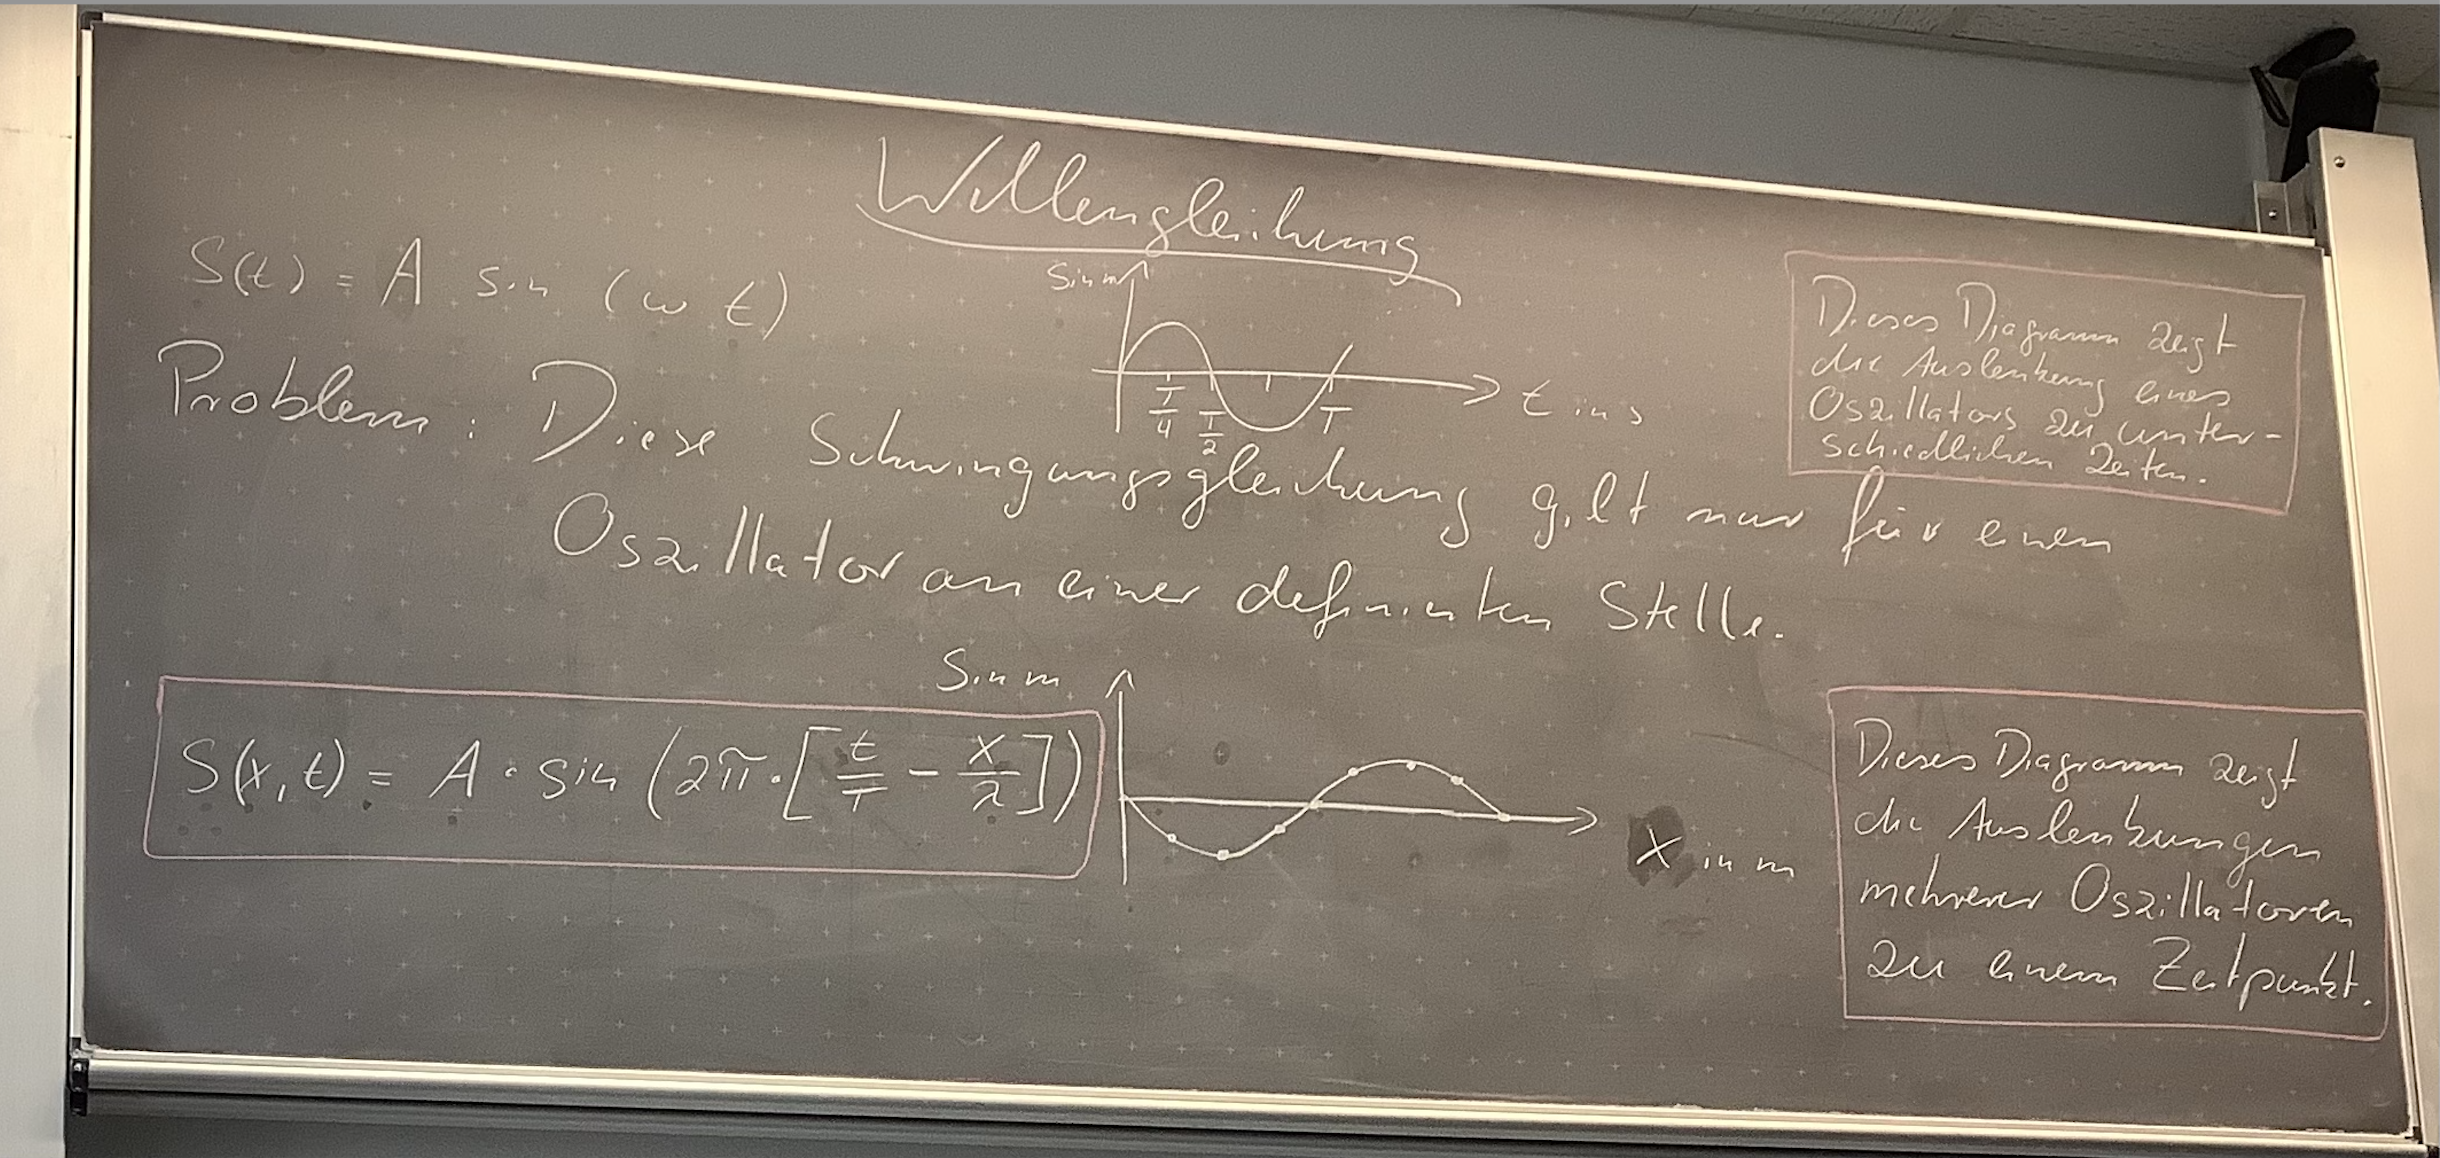 Wellengleichung
S(t) = A sin (ω t)
S in m
T/4 T/2 T
t in s
Dieses Diagramm zeigt
die Auslenkung eines
Oszillators zu unter-
schiedlichen Zeiten.
Problem: Diese Schwingungsgleichung gilt nur für einen
Oszillator an einer definierten Stelle.
S(x,t) = A · sin (2π·[t/T − x/λ])
S in m
x in m
Dieses Diagramm zeigt
die Auslenkungen
mehrerer Oszillatoren
zu einem Zeitpunkt.